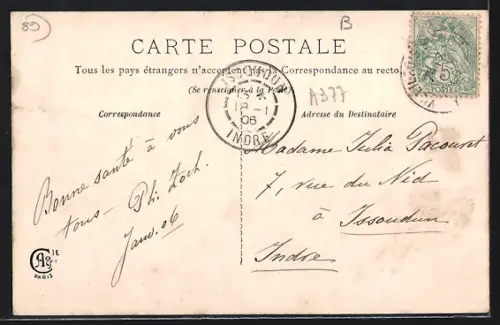 89
B
CARTE POSTALE
Tous les pays étrangers n'acceptent pas la Correspondance au recto
(Se renseigner à la Poste)
Correspondance
Adresse du Destinataire
A377
ISSOUDUN
06
INDRE
5
POSTES
Bonne santé à vous
tous - Ph. Zoch.
Janv. 06
Madame Julia Pacouret
7, rue du Nid
à Issoudun
Indre
PARIS